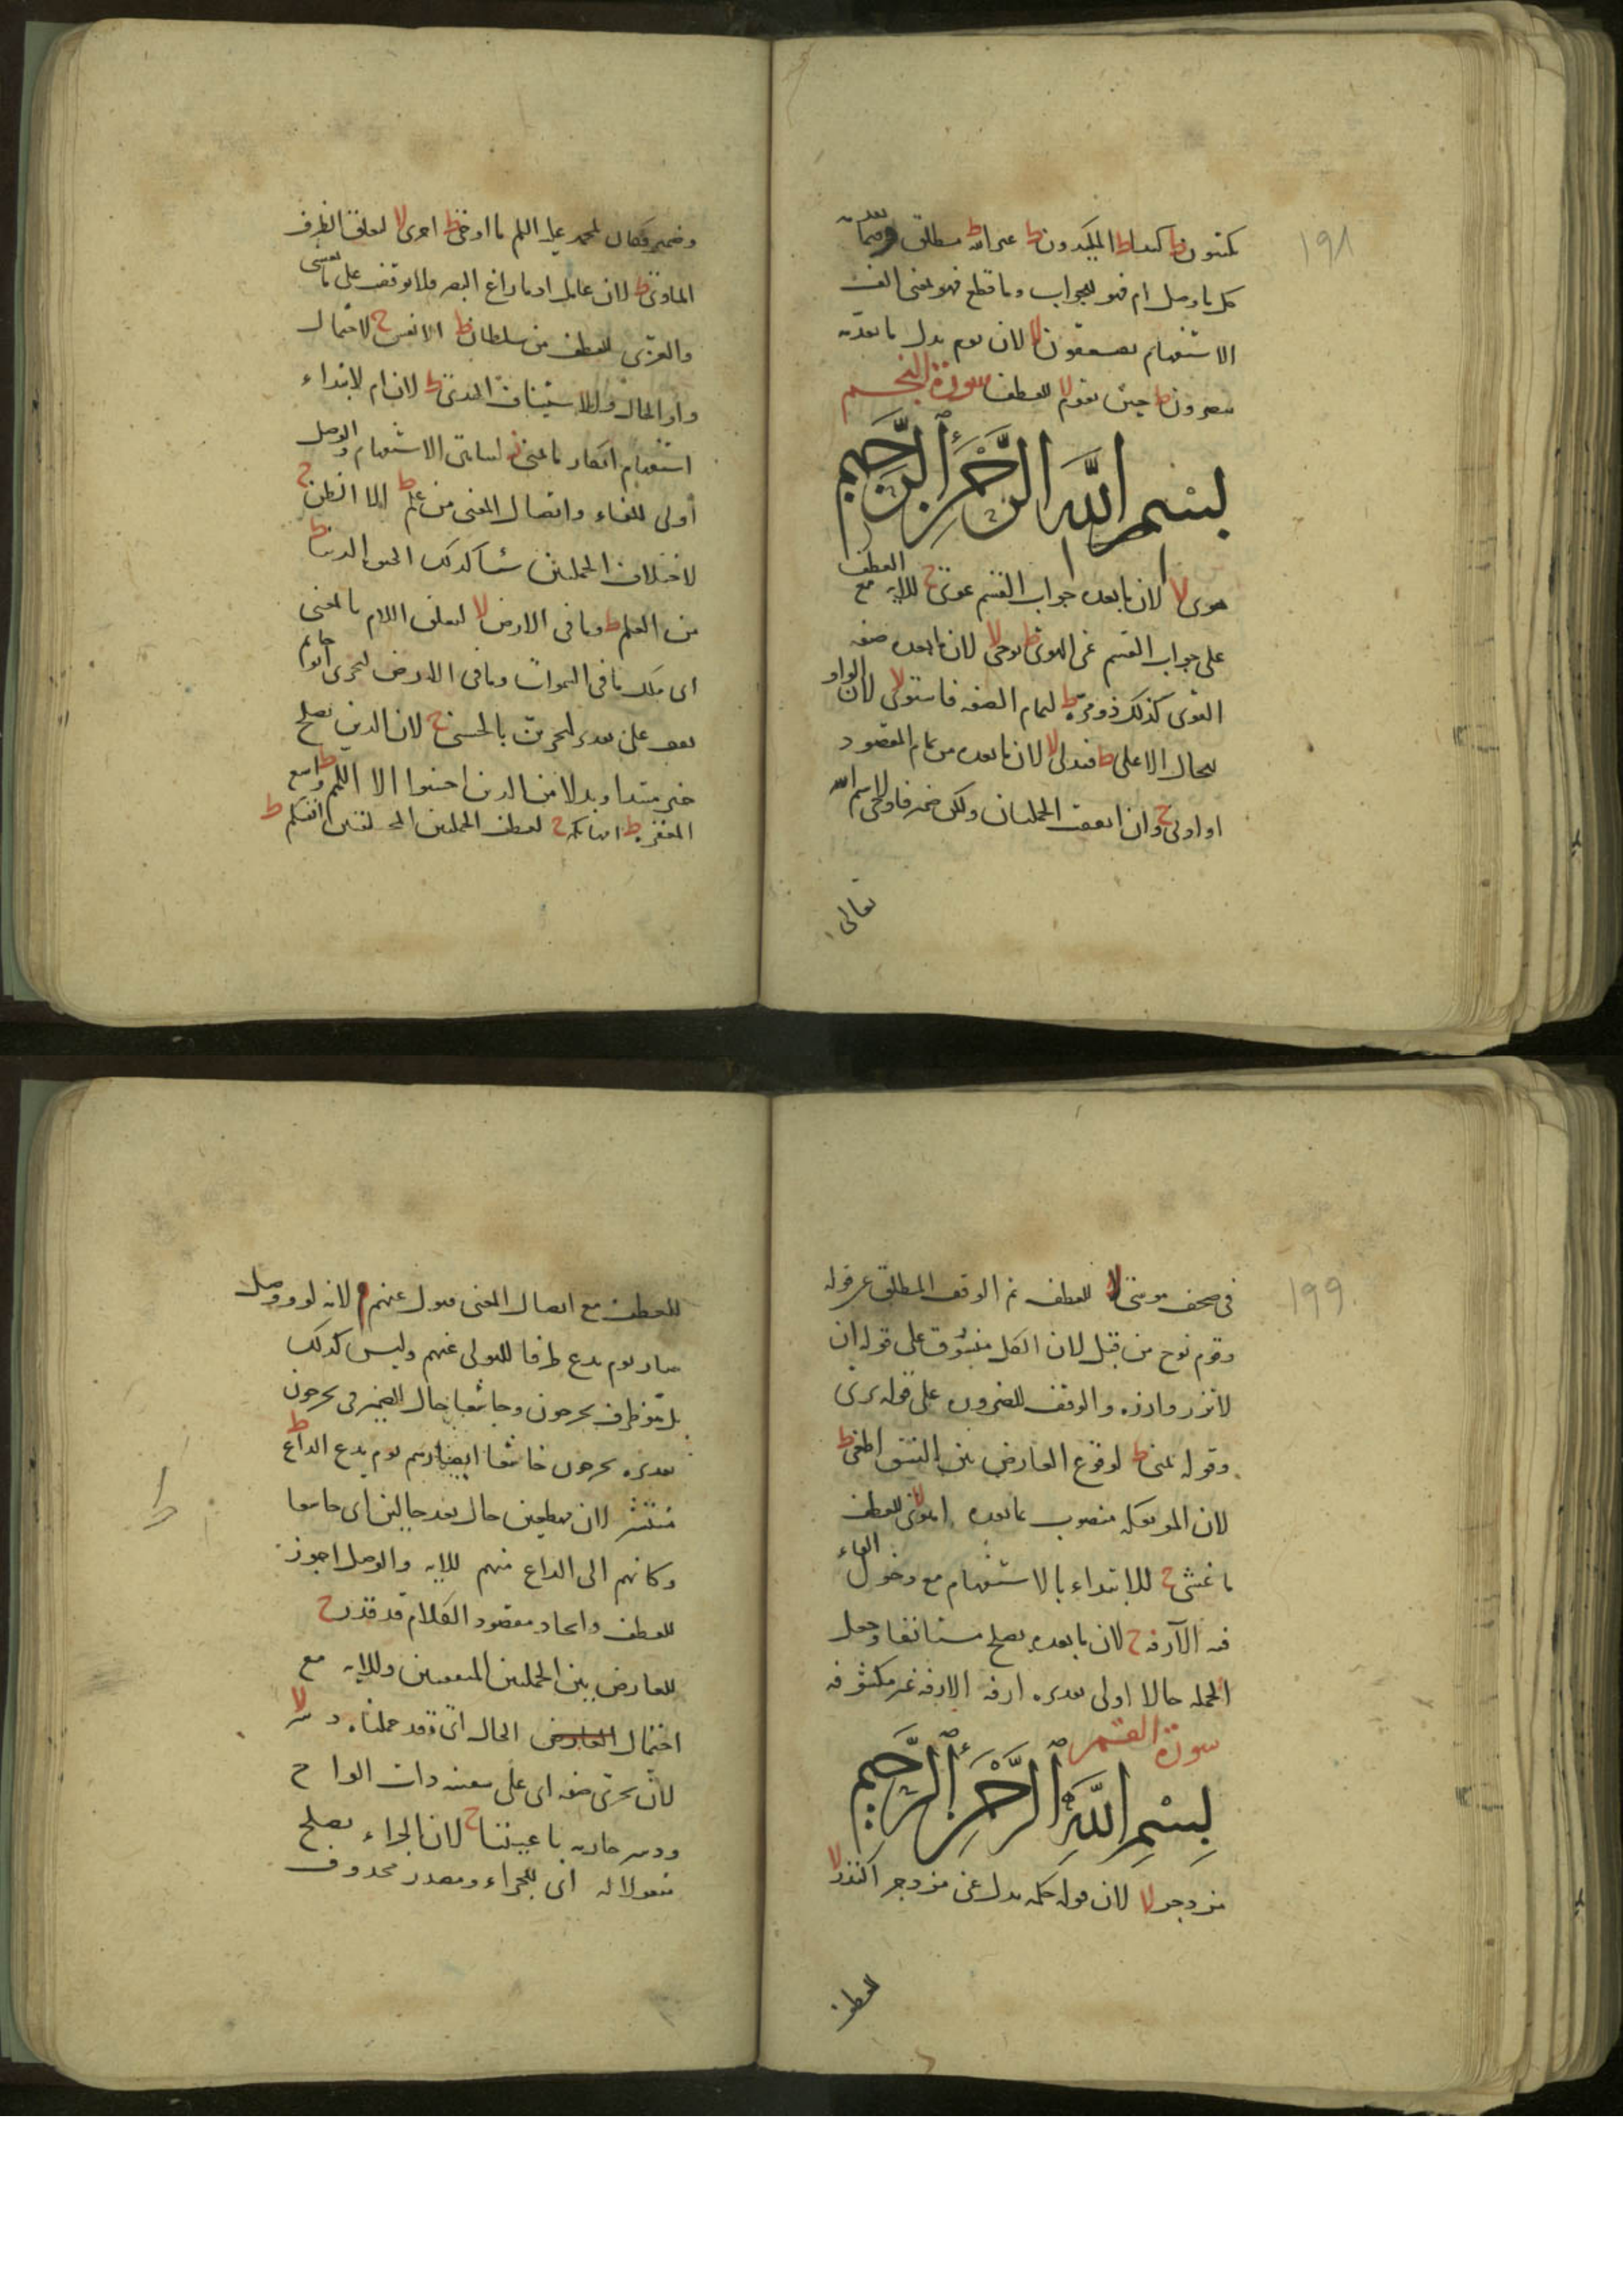 ١٩٨
يكتبون ط كيدا ط المكيدون ط غير الله ط مطلق وصما بعده
كل ما وصل ام فهو للجواب وما قطع فهو بمعنى الف
الاستفهام يصعقون لا لان يوم بدل ما بعده
ينصرون ط حين تقوم لا للعطف سورة النجم
بسم الله الرحمن الرحيم
هوى لا لان ما بعده جواب القسم غوى ج للاية مع العطف
على جواب القسم عن الهوى ط يوحى لا لان ما بعده صفة
القوى كذلك ذو مرة ط لتمام الصفة فاستوى لا لان الواو
للحال الاعلى ط فتدلى لا لان ما بعده من تمام المقصود
او ادنى ج وان اتفقت الجملتان ولكن ضمير فاوحى لاسم الله
تعالى
وضمير فكان لمحمد عليه السلم ما اوحى ط اخرى لا لتعلق الظرف
الماوى ط لان عامل اذ ما زاغ البصر فلا توقف على ما يغشى
والعزى للعطف من سلطان ط الانفس ج لاحتمال
واو الحال والاستيناف الهدى ط لان ام لابتداء
استفهام انكار ما تمنى ز لتناهي الاستفهام والوصل
أولى للفاء واتصال المعنى من علم ط الا الظن ج
لاختلاف الجملتين شيا كذلك الحيوة الدنيا ط
من العلم ط وما في الارض لا لتعلق اللام بالمعنى
اى ملك ما في السموات وما في الارض ليجزى
على تقدير ليجزى بالحسنى ج لان الذين يصلح
خبر مبتدا وبدلا من الذين احسنوا الا اللمم ط واسع
المغفرة ط امهاتكم ج لعطف الجملتين المختلفتين انفسكم ط
١٩٩
في صحف موسى لا للعطف ثم الوقف المطلق على قوله
وقوم نوح من قبل لان الكل منسوق على قوله ان
لا تزر وازرة والوقف للضرورة على قوله يرى
وقوله تمنى ط لوقوع العارض بين النسق اطغى ط
لان الموتفكة منصوب بما بعده اهوى لا للعطف
ما غشى ج للابتداء بالاستفهام مع دخول الفاء
فيه الآزفة ج لان ما بعده يصلح مستانفا وجعل
الجملة حالا اولى تقديره ازفة الازفة غير مكشوفة
سورة القمر
بسم الله الرحمن الرحيم
مزدجر لا لان قوله حكمة بدل عن مزدجر النذر لا
للعطف
للعطف مع اتصال المعنى فتول عنهم م لانه لو وصل
صار يوم يدع ظرفا للتولى عنهم وليس كذلك
بل هو ظرف يخرجون وخاشعا حال الضمير في يخرجون
تقديره يخرجون خاشعا ابصارهم يوم يدع الداع ط
منتشر لان مهطعين حال بعد حالين اى خاشعا
وكانهم الى الداع منهم للاية والوصل اجوز
للعطف واتحاد مقصود الكلام قد قدر ج
للعارض بين الجملتين المتفقتين وللاية مع
احتمال العارض الحال اى وقد حملناه ودسر لا
لان تجرى صفة اى على سفينة ذات الواح
ودسر جارية باعيننا ج لان الجزاء يصلح
مفعولا له اى للجزاء ومصدر محذوف